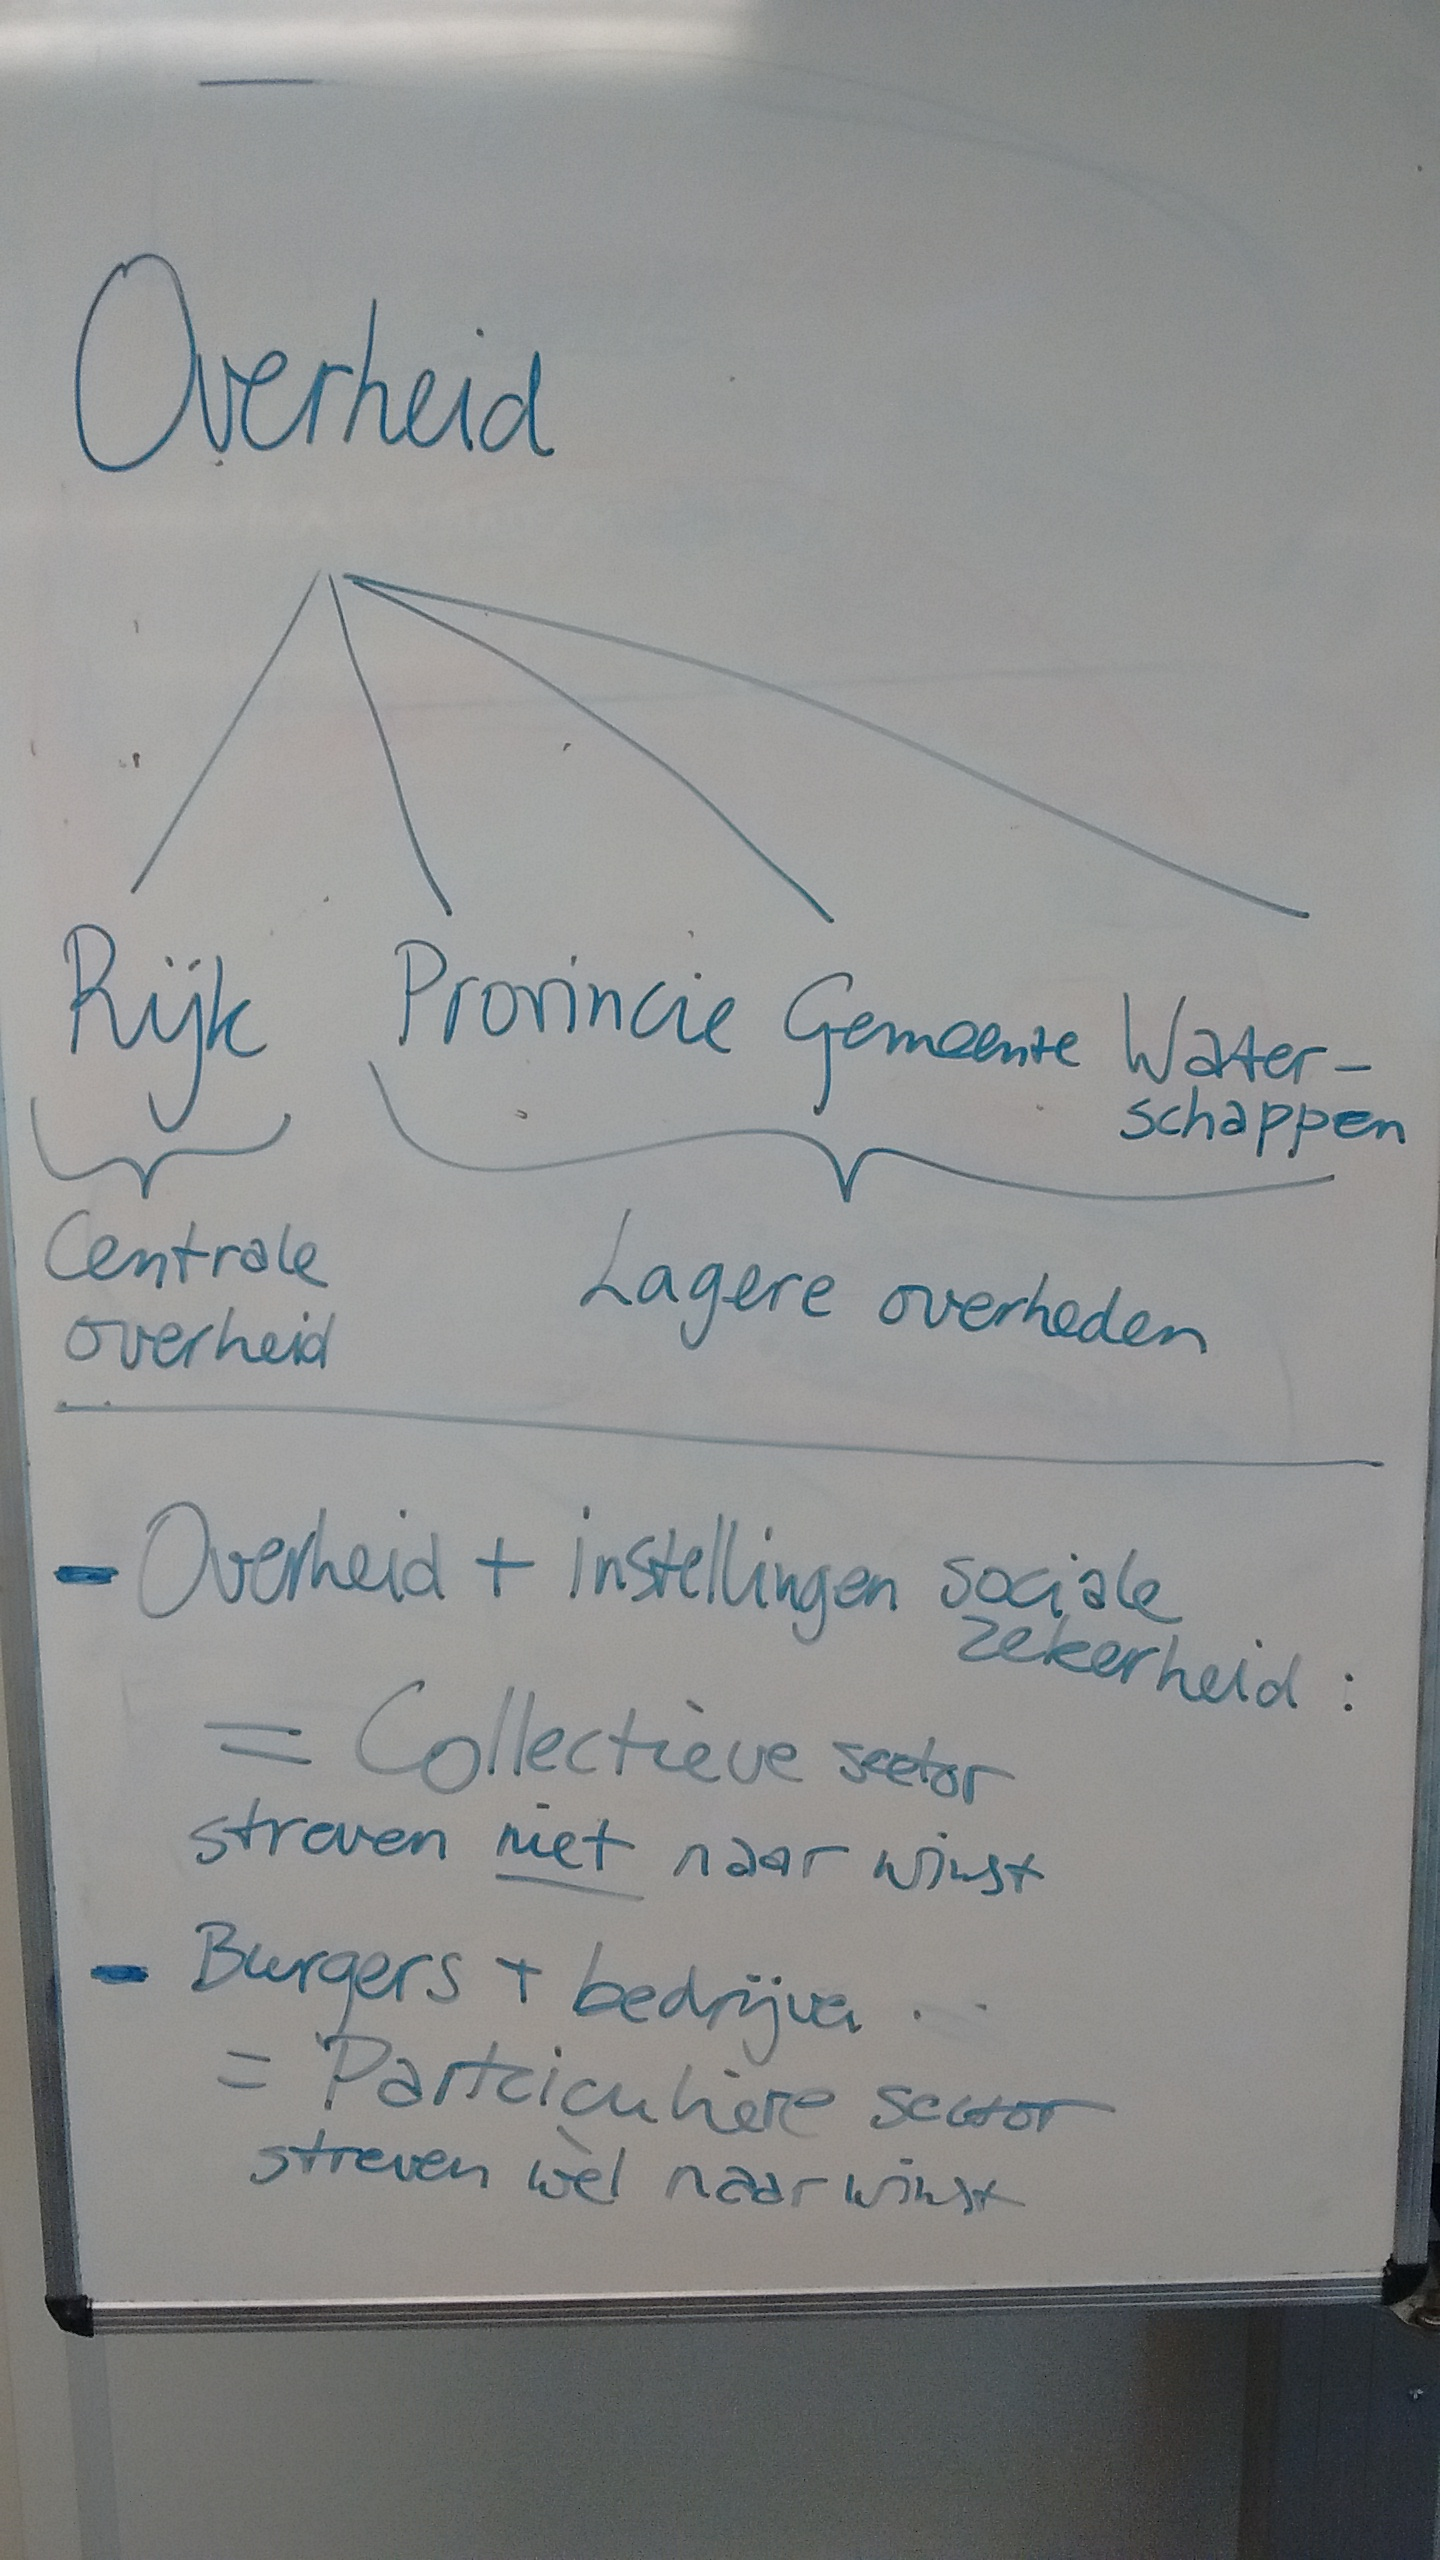 Overheid
Rijk Provincie Gemeente Water-
schappen
Centrale
overheid
Lagere overheden
- Overheid + instellingen sociale
zekerheid :
= Collectieve sector
streven niet naar winst
- Burgers + bedrijven
= Particuliere sector
streven wèl naar winst